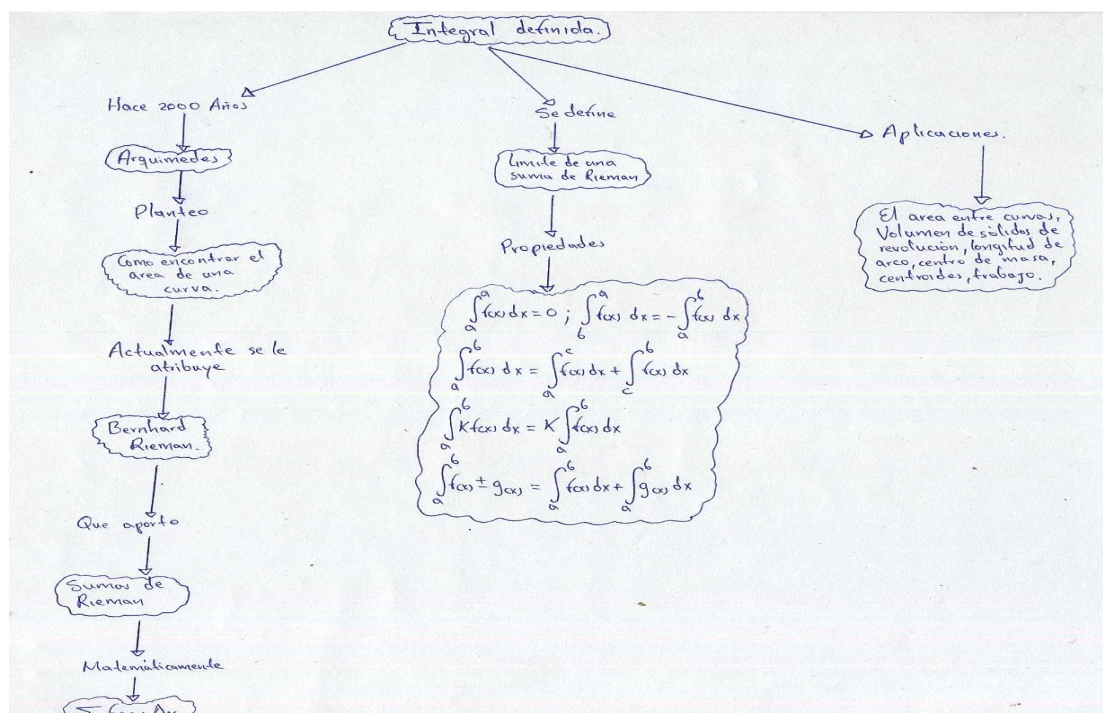 Integral definida.
Hace 2000 Años
Arquimedes
Planteo
Como encontrar el
area de una
curva.
Actualmente se le
atribuye
Bernhard
Rieman.
Que aporto
Sumas de
Rieman
Matemáticamente
Se define
Limite de una
suma de Rieman
Propiedades
∫ₐᵃ f(x) dx = 0 ; ∫_b^a f(x) dx = -∫ₐᵇ f(x) dx
∫ₐᵇ f(x) dx = ∫ₐᶜ f(x) dx + ∫_c^b f(x) dx
∫ₐᵇ K f(x) dx = K ∫ₐᵇ f(x) dx
∫ₐᵇ f(x) ± g(x) = ∫ₐᵇ f(x) dx + ∫ₐᵇ g(x) dx
Aplicaciones.
El area entre curvas,
Volumen de sólidos de
revolución, longitud de
arco, centro de masa,
centroides, trabajo.